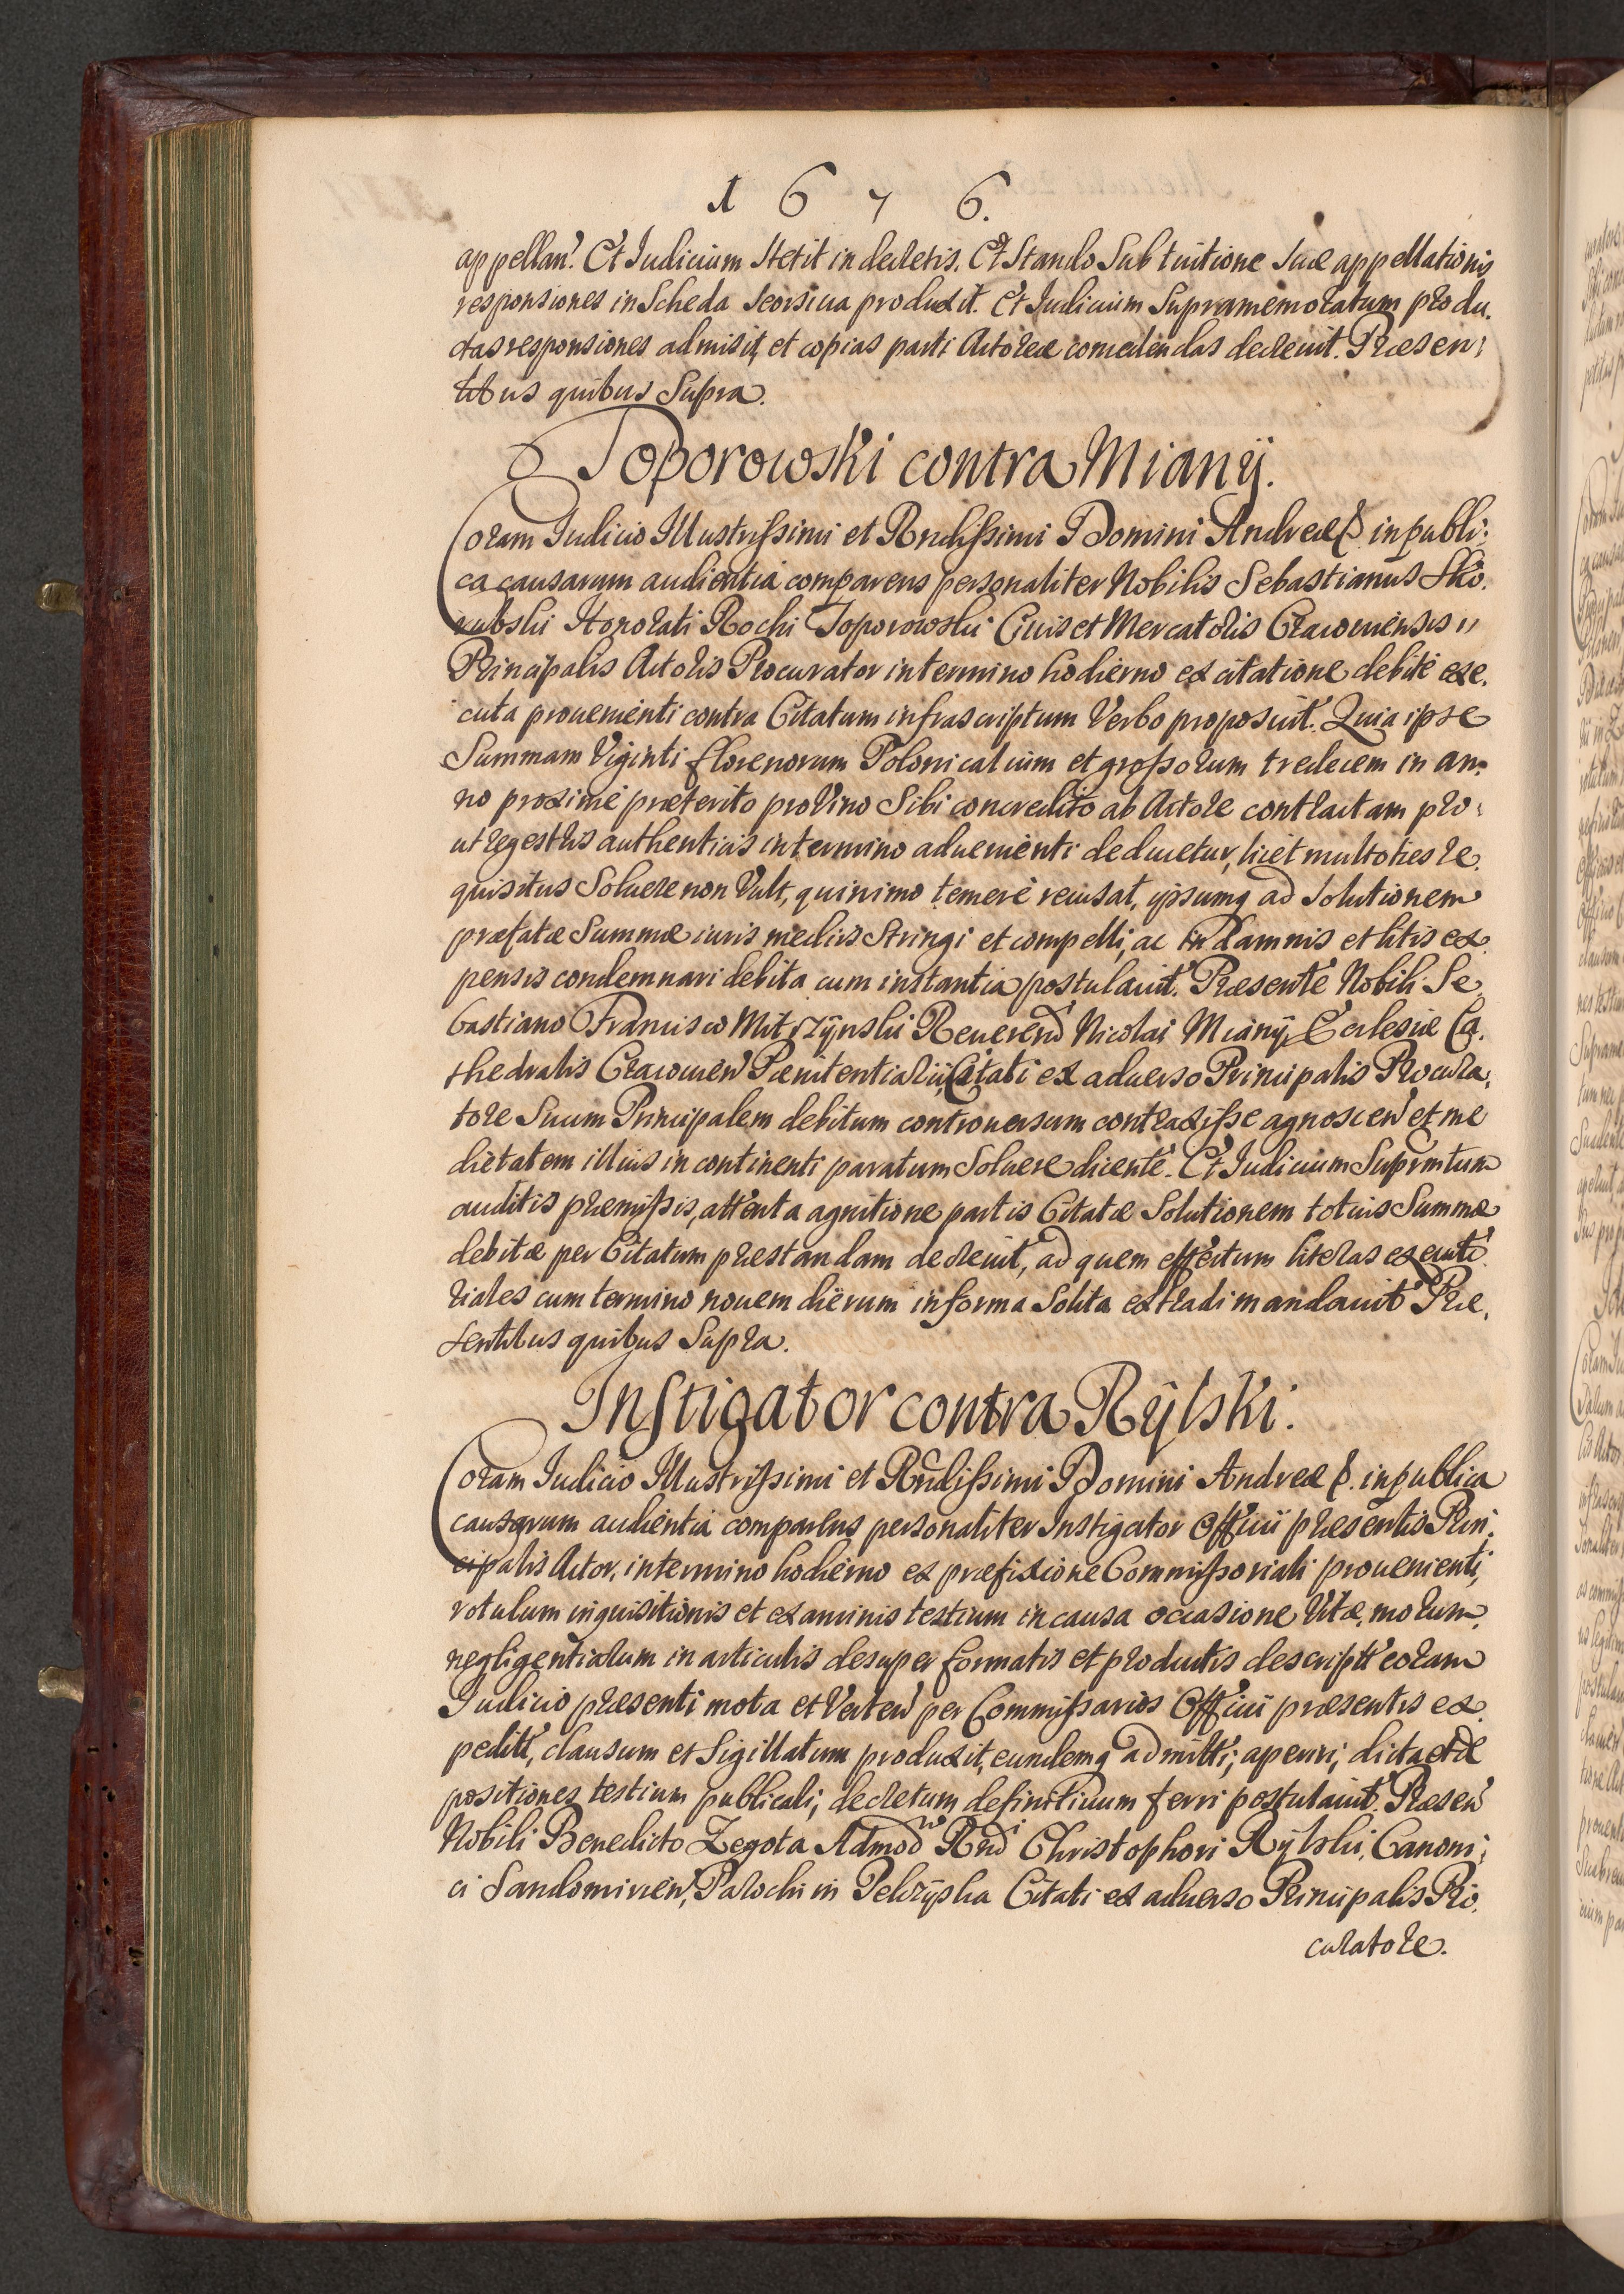 1 6 7 6.
appellan. Et Iudicium stetit in decretis. Et Stando Sub tuitione suæ appellationis
responsiones in Scheda seorsiua produxit. Et Iudicium Supramemoratum produ-
ctas responsiones admisit, et copias parti Actoreæ concedendas decreuit. Præsen-
tibus quibus Supra.
Toporowski contra Mianÿ.
Coram Iudicio Illustrissimi et Rndissimi Domini Andreæ &. in publi-
ca causarum audientia comparens personaliter Nobilis Sebastianus Sko-
rubski Honorati Rochi Toporowski Ciuis et Mercatoris Cracouiensis
Principalis Actoris Procurator in termino hodierno ex citatione debitè exe-
cuta prouenienti contra Citatum infrascriptum Verbo proposuit. Quia ipse
Summam Viginti florenorum Polonicalium et grossorum tredecem in an-
no proximè præterito pro Vino Sibi concredito ab Actore contractam pro-
ut regestris authenticis in termino aduenienti deducetur, licet multoties re-
quisitus Soluere non Vult, quinimo temerè recusat, ipsumq ad solutionem
præfatæ Summæ iuris medijs Stringi et compelli, ac in damnis et litis ex-
pensis condemnari debita cum instantia postulauit. Præsente Nobili Se-
bastiano Francisco Mitrzÿnski Reuerend Nicolai Mianÿ, Ecclesiæ Ca-
thedralis Cracouien Pænitentiarij Citati ex aduerso Principalis Procura-
tore Suum Principalem debitum controuersum contraxisse agnoscen et me
dietatem illius in continenti paratum Soluere dicente. Et Iudicium Suprmtum
auditis præmissis, attenta agnitione partis Citatæ Solutionem totius Summæ
debitæ per Citatum præstandam decreuit, ad quem effectum literas executo-
riales cum termino nouem dierum in forma Solita extradi mandauit Præ-
sentibus quibus Supra.
Instigator contra Rÿlski.
Coram Iudicio Illustrissimi et Rndissimi Domini Andreæ &. in publica
causarum audientia comparens personaliter Instigator Officii præsentis Prin-
cipalis Actor, in termino hodierno ex præfixione Commissoriali prouenienti,
rotulum inquisitionis et examinis testium in causa occasione Vitæ, morum
negligentiarum in articulis desuper formatis et productis descript coram
Iudicio præsenti mota et Verten per Commissarios Officii præsentis ex-
pedit, clausum et Sigillatum produxit, eundemq admitti, aperiri, dicta et de
positiones testium publicari, decretum definitiuum ferri postulauit. Præsen
Nobili Benedicto Zegota Admod Rnd Christophori Rÿlski, Canoni-
ci Sandomirien, Parochi in Pelczÿska Citati ex aduerso Principalis Pro-
curatore.